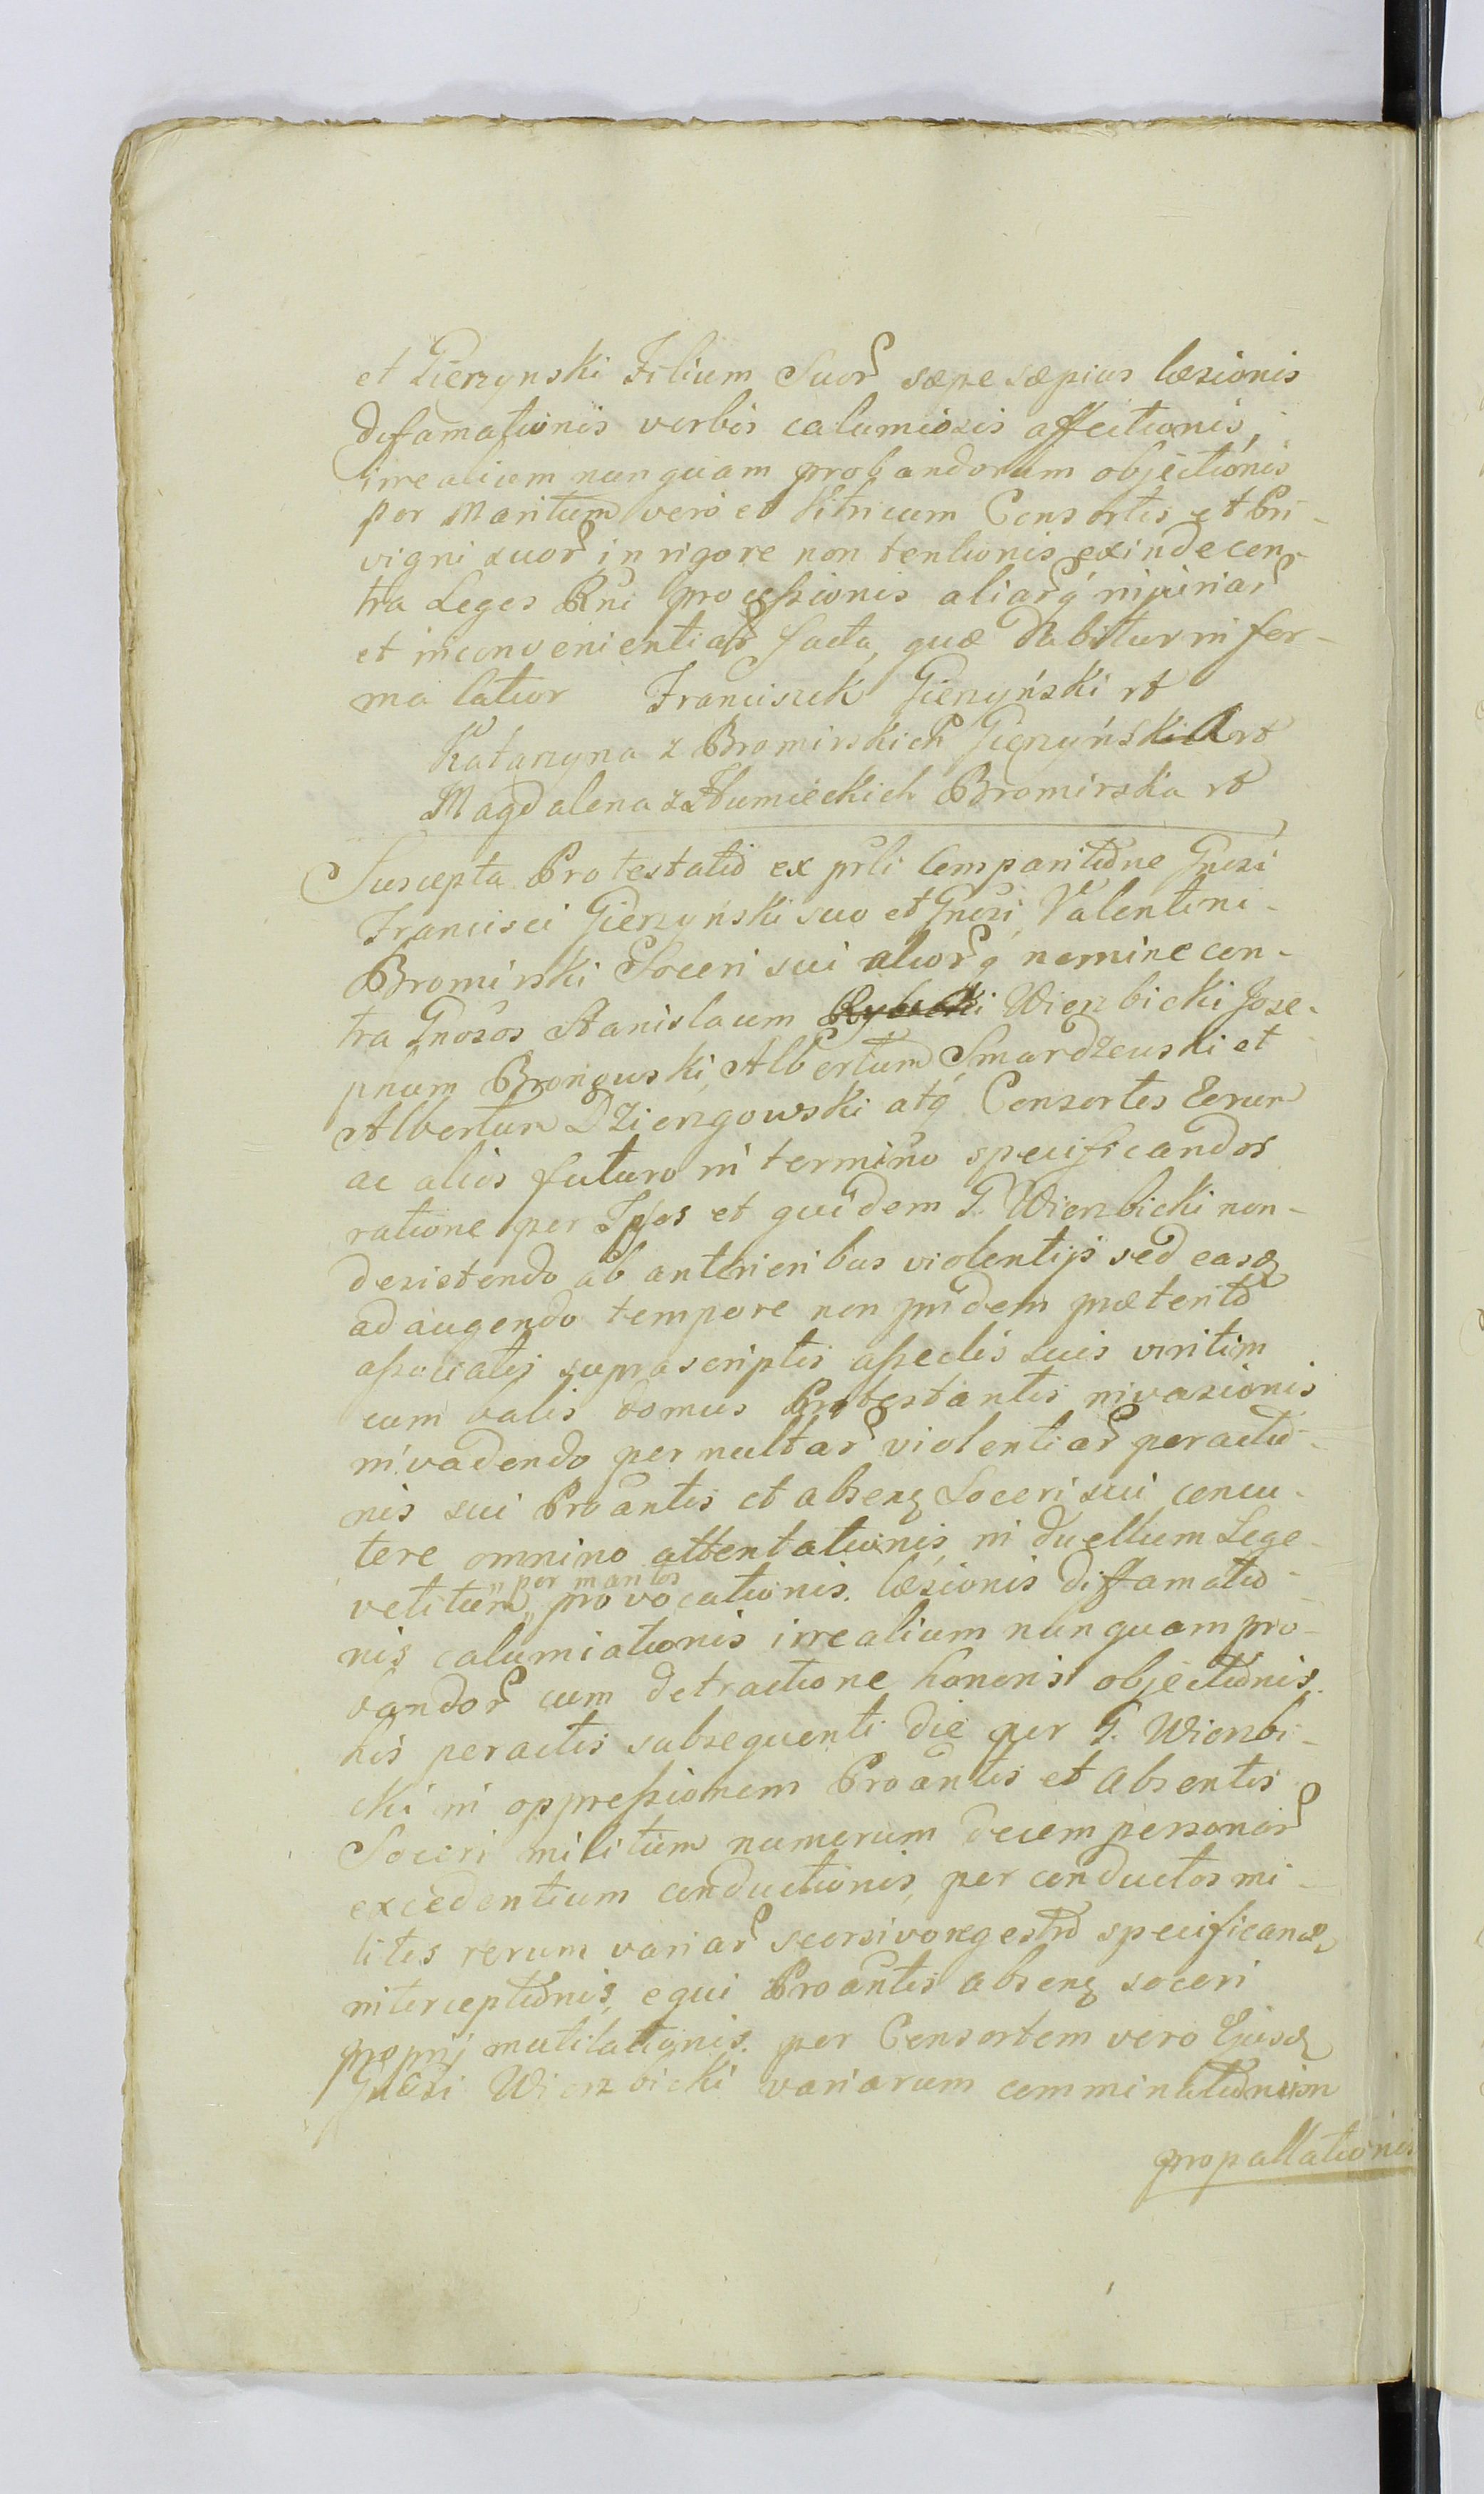 et Gierzynski Filium Suor sæpe sæpius læsionis
defamationis verbis calumiosis affectionis,
irrealium nunquam probandorum objectionis
per Maritum vero et Vitricum Consortis et Pri-
vigni suor in rigore non tentionis exinde con-
tra Leges Rni processionis aliarq injuriar
et inconvenientiar facta, quæ dabitur in for-
ma latior Franciszek Gierzyński rt
Katarzyna z Bromirskich Gierzyńska rt
Magdalena z Humieckich Bromirska rt
Suscepta Protestatio ex prli Comparitione Gnosi
Francisci Gierzyński suo et Gnosi Valentini
Bromirski Soceri sui aliorq nomine con-
tra Gnosos Stanislaum Rybicki Wierzbicki Jose-
phum Brongwski, Albertum Smardzewski et
Albertum Dziergowski atq Consortes Eorum
ac alios futuro in termino specificandos
ratione per Ipsos et quidem G. Wierzbicki non
desistendo ab anterioribus violentijs sed easq
adaugendo tempore non pridem præterito
associatis suprascriptis asseclis suis viritim
cum valis domus Protestantis invasionis
invadendo per multar violentiar peractio-
nis sui Proantis et absenq Soceri sui concu-
tere omnino attentationis, in duellum Lege
vetitum, "per mantes provocationis. læsionis diffamatio-
nis calumiationis irrealium nunquam pro-
bandor cum detractione honoris objectionis.
his peractis subsequenti die per G. Wierzbi-
cki in oppressionem Proantis et absentis
Soceri militum numerum decem personar
excedentium conductionis, per conductos mi-
lites rerum variar seorsivo regestro specificand
interceptionis, equi Proantis absenq soceri
proprij mutilationis. per Consortem vero Ejusd
Gnosi Wierzbicki variarum comminationum
propallationis